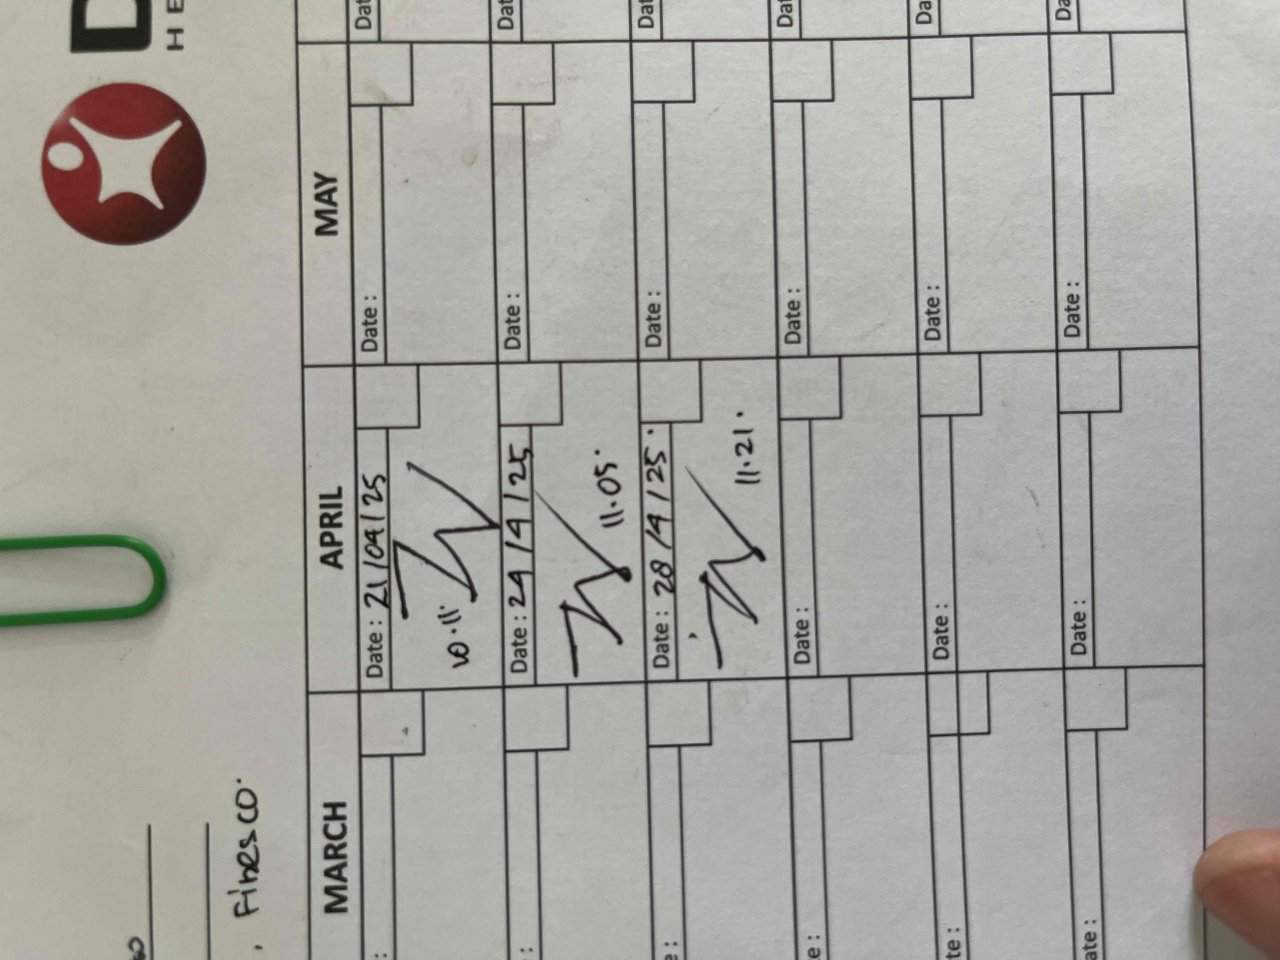 D
HE
Fibesco.
MARCH
APRIL
MAY
Date : 21/04/25
10.11.
Date : 24/4/25
11.05.
Date : 28/4/25.
11.21.
Date :
Date :
Date :
Date :
Date :
Date :
Date :
Date :
Date :